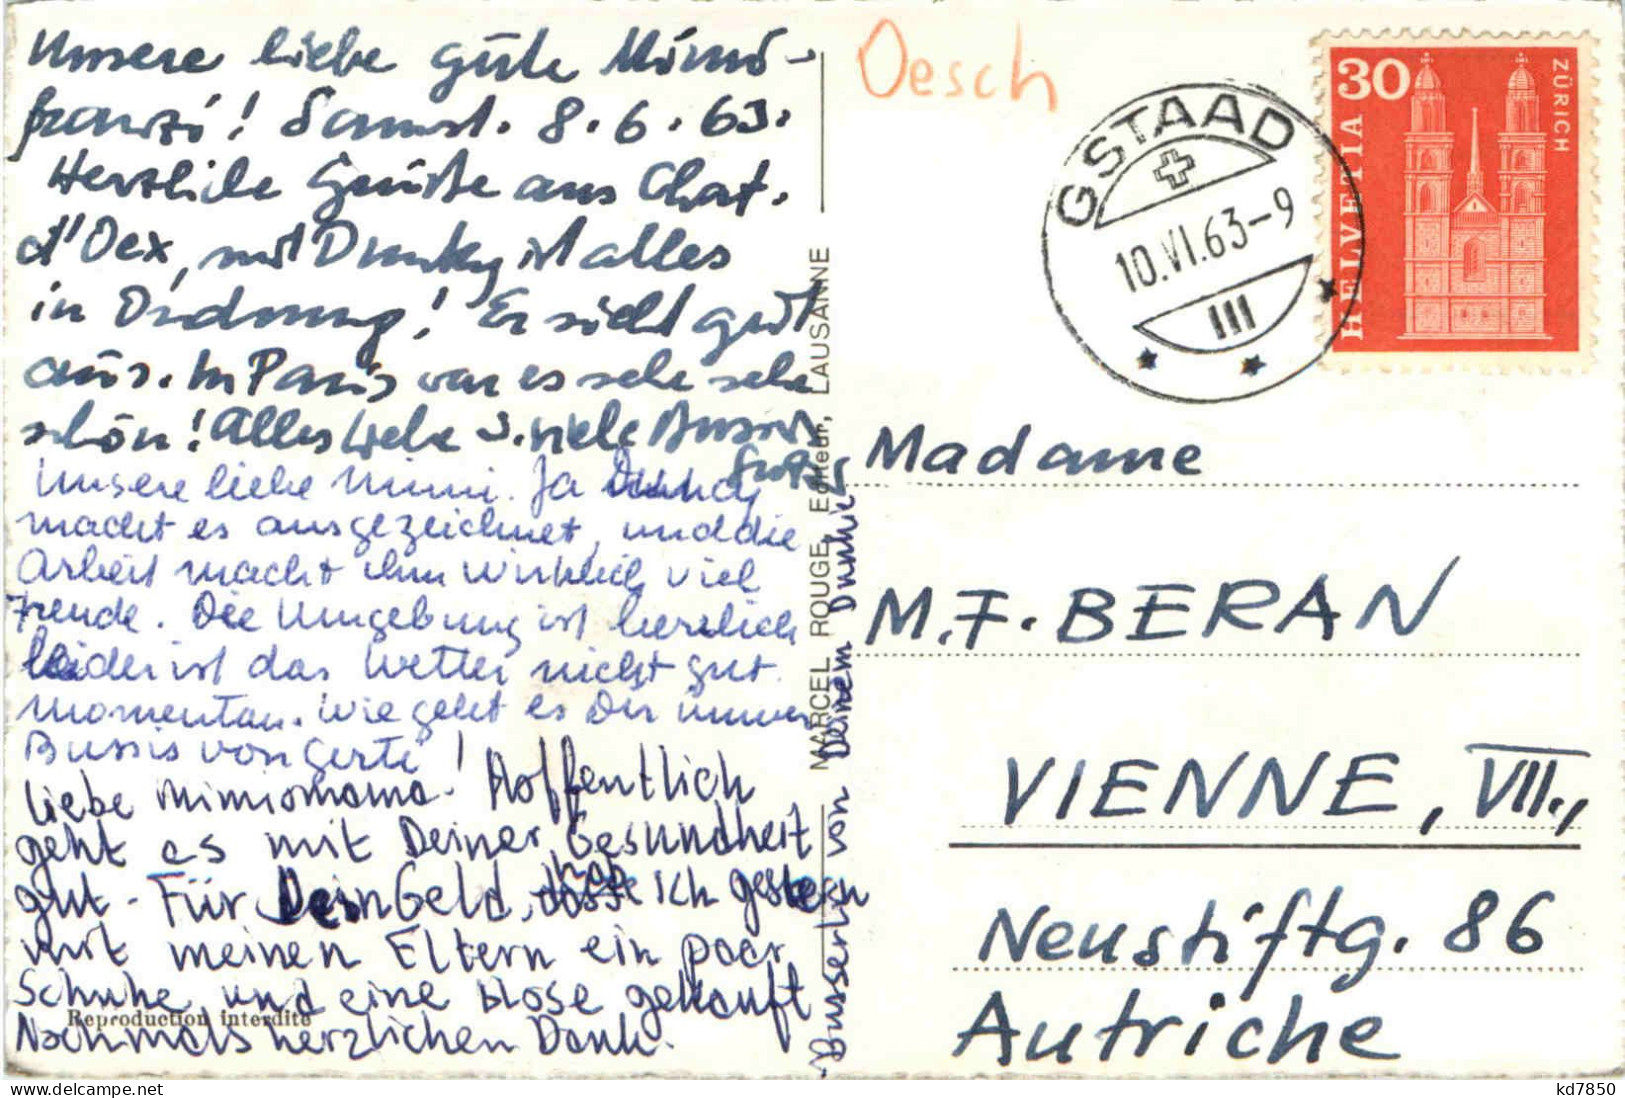 Unsere liebe gute Mimi-
franzi! Samst. 8.6.63.
Herzliche Grüße aus Chat.
d'Oex, mit Dunky ist alles
in Ordnung! Er sieht gut
aus. In Paris war es sehr sehr
schön! Alles Liebe u. viele Bussis
Unsere liebe Mimi. Ja Duncy
macht es ausgezeichnet, und die
Arbeit macht ihm wirklich viel
Freude. Die Umgebung ist herrlich
leider ist das Wetter nicht gut
momentan. Wie geht es Dir immer
Bussis von Gerti!
Liebe Mimiomama. Hoffentlich
geht es mit Deiner Gesundheit
gut. Für Dein Geld, habe ich gestern
mit meinen Eltern ein paar
Schuhe und eine Hose gekauft
Nochmals herzlichen Dank.
Busserl von Deinem Dunkie
Reproduction interdite
MARCEL ROUGE, Editeur, LAUSANNE
Oesch
GSTAAD
10.VI.63-9
III
30
ZÜRICH
HELVETIA
Madame
M.F. BERAN
VIENNE, VII.,
Neustiftg. 86
Autriche
delcampe.net
kd7850